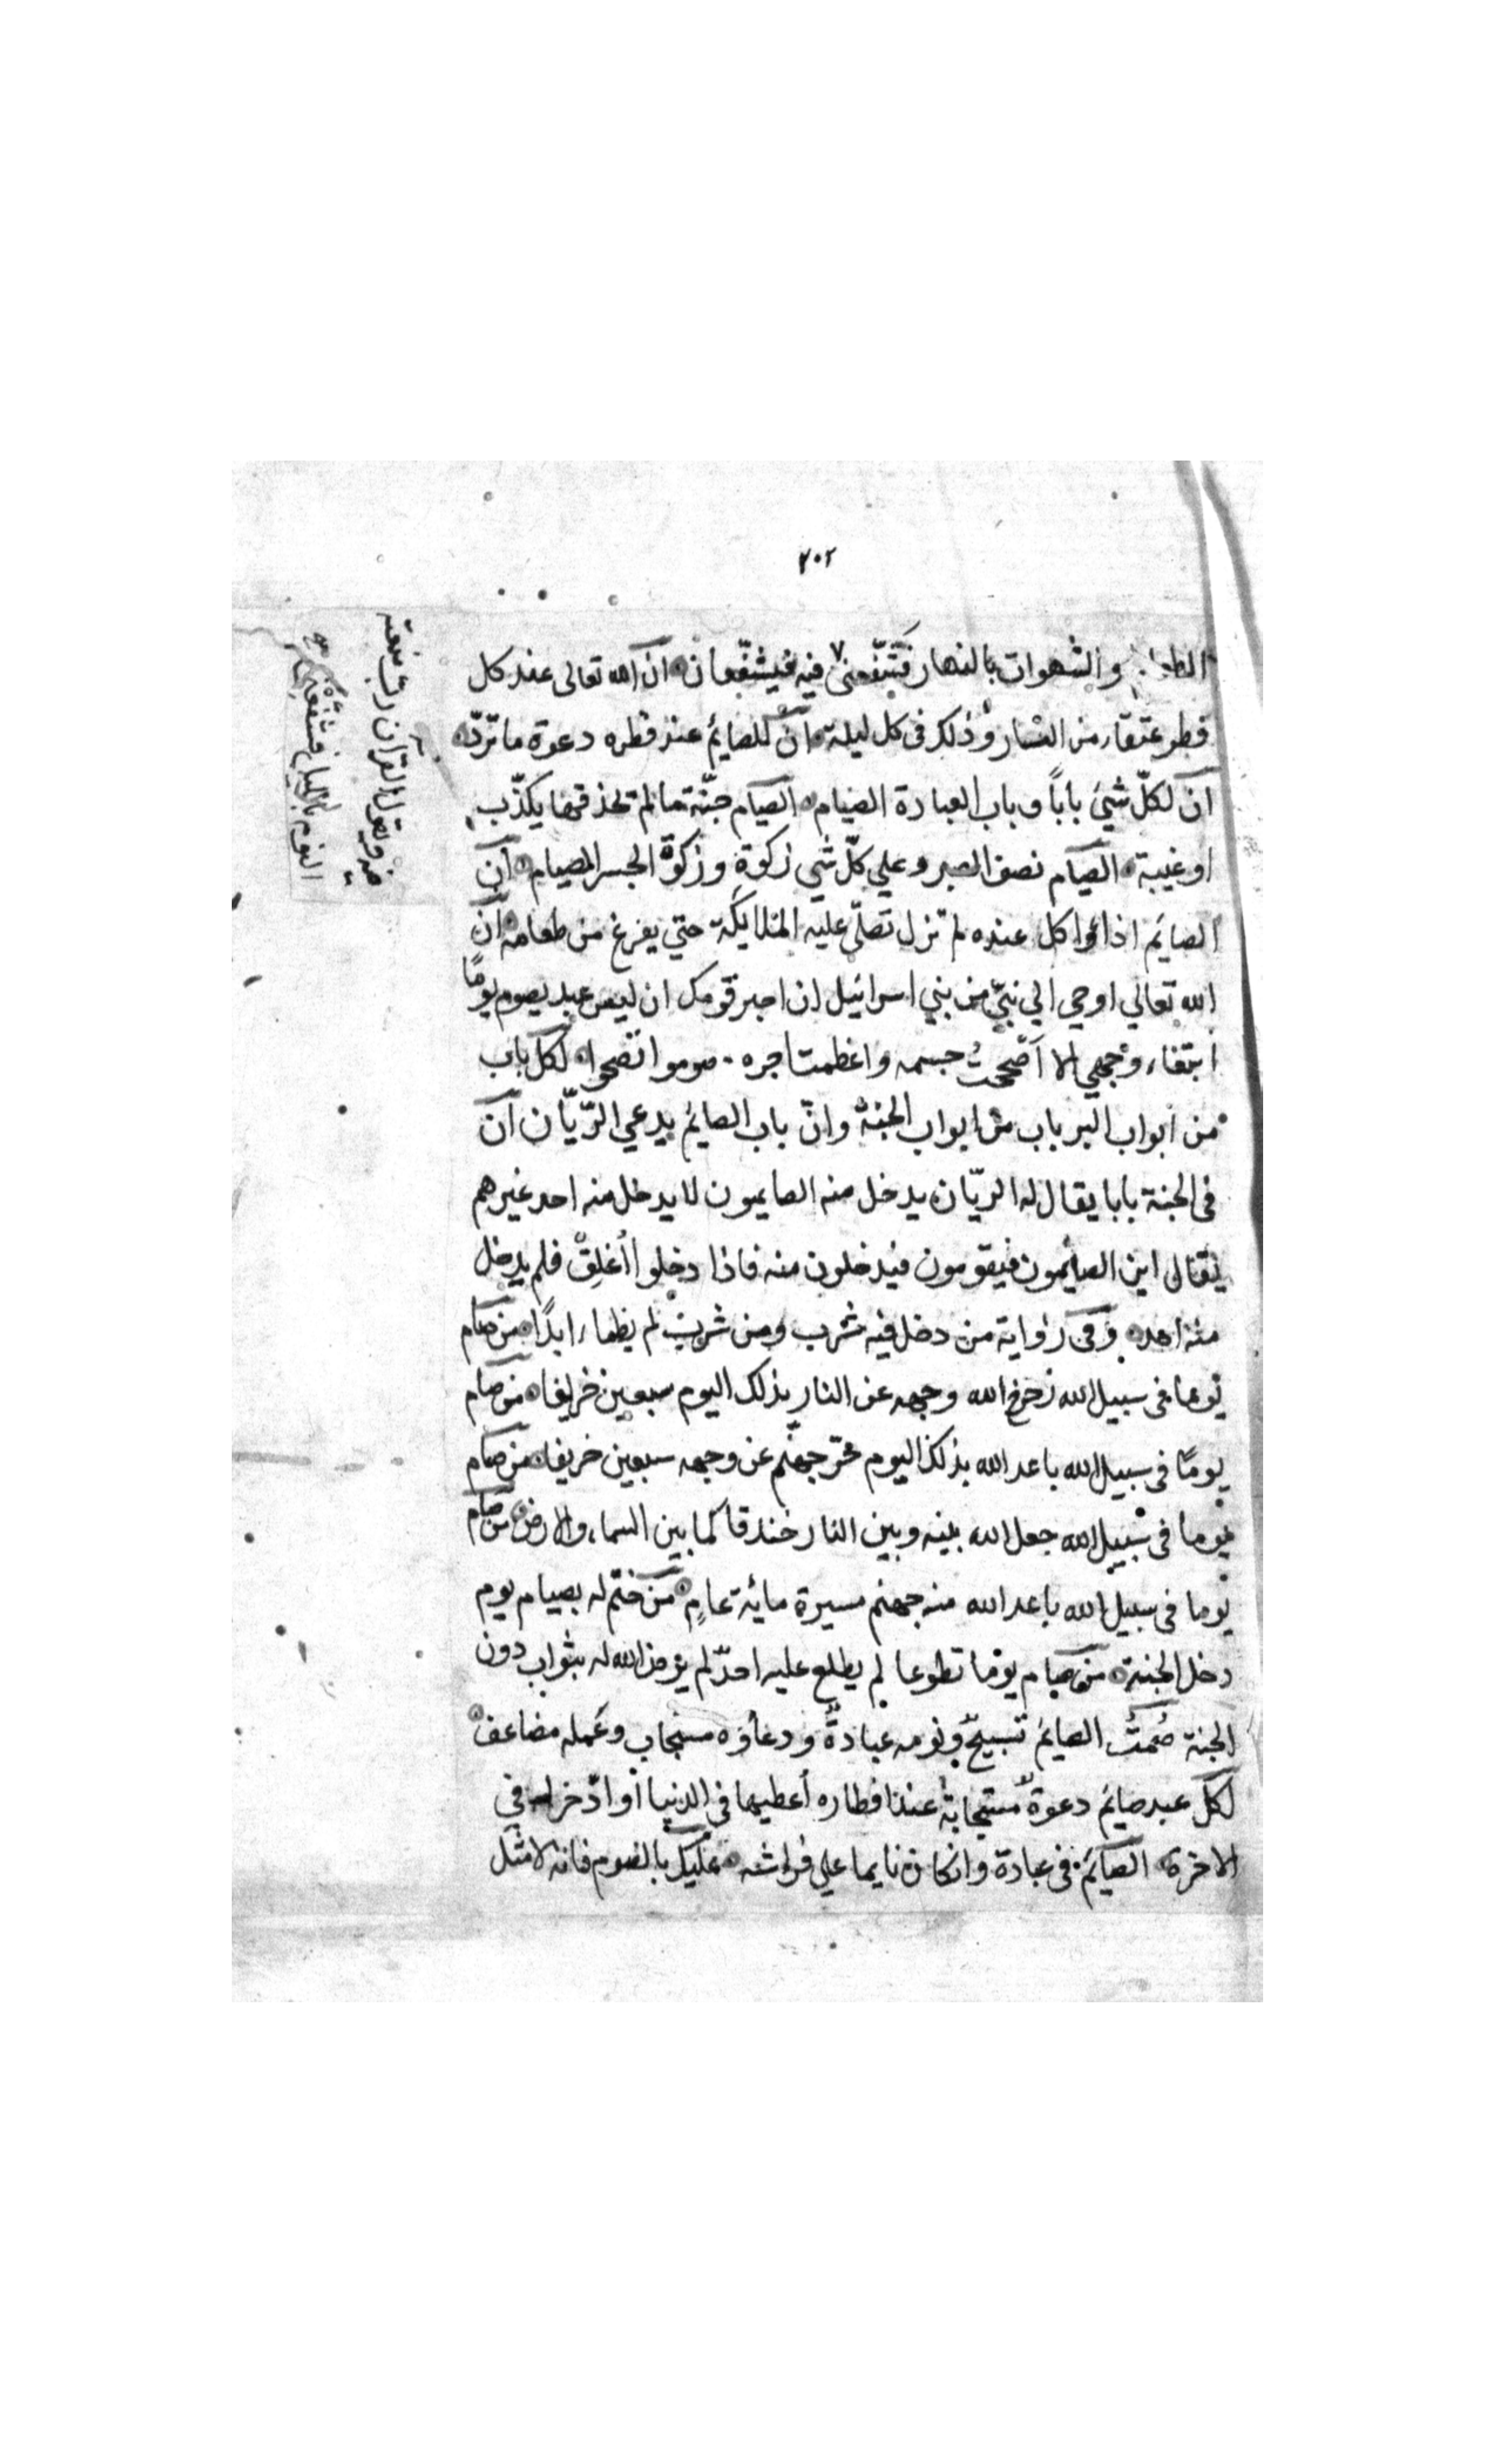 ٢٠٢
الطعام والشهوات بالنهار فَشَفّعنى فيه فيشفّعان ان الله تعالى عند كل
فطر عتقاء من النار وذلك فى كل ليلة ان للصايم عند فطره دعوة ما تردّ
ان لكلّ شيئ باباً وباب العبادة الصيام الصيام جنّة ما لم تخذقها يكذّب
او غيبة الصيام نصف الصبر وعلي كلّ شي زكوة وزكوة الجسد الصيام ان
الصايم اذا اكل عنده لم تزل تصلّى عليه الملايكة حتي يفرغ من طعامه ان
الله تعالي اوحي الي نبيّ من بني اسرائيل ان اخبر قومك ان ليس عبد يصوم يومًا
ابتغاء وجهي الا اَصْححتُ جسمه واعظمت اجره صوموا تصحوا لكل باب
من ابواب البر باب من ابواب الجنة وانّ باب الصايم يدعي الرّيّان ان
فى الجنة بابا يقال له الريّان يدخل منه الصايمون لا يدخل منه احد غيرهم
يقال اين الصايمون فيقومون فيدخلون منه فاذا دخلوا اُغلِق فلم يدخل
منه احد وفى رواية من دخل فيه شرب ومن شرب لم يظماء ابدًا من صام
يوما فى سبيل الله زحزح الله وجهه عن النار بذلك اليوم سبعين خريفا من صام
يومًا فى سبيل الله باعد الله بذلك اليوم حرّ جهنّم عن وجهه سبعين خريفا من صام
يوما فى سبيل الله جعل الله بينه وبين النار خندقا كما بين السماء والارض من صام
يوما فى سبيل الله باعد الله منه جهنم مسيرة ماية عامٍ من ختم له بصيام يوم
دخل الجنة من صام يوما تطوعا لم يطلع عليه احدٌ لم يرض الله له بثواب دون
الجنة صُمتُ الصايم تسبيحٌ ونومه عبادةٌ ودعاؤه مستجاب وعمله مضاعف
لكل عبد صايم دعوة مستجابة عند افطاره اعطيها فى الدنيا او ادّخر له في
الاخرة الصايم فى عبادة وان كان نايما علي فراشه عليك بالصوم فانه لا مثل
ويقول القران ربّ منعته
النوم بالليل فشفّعنى